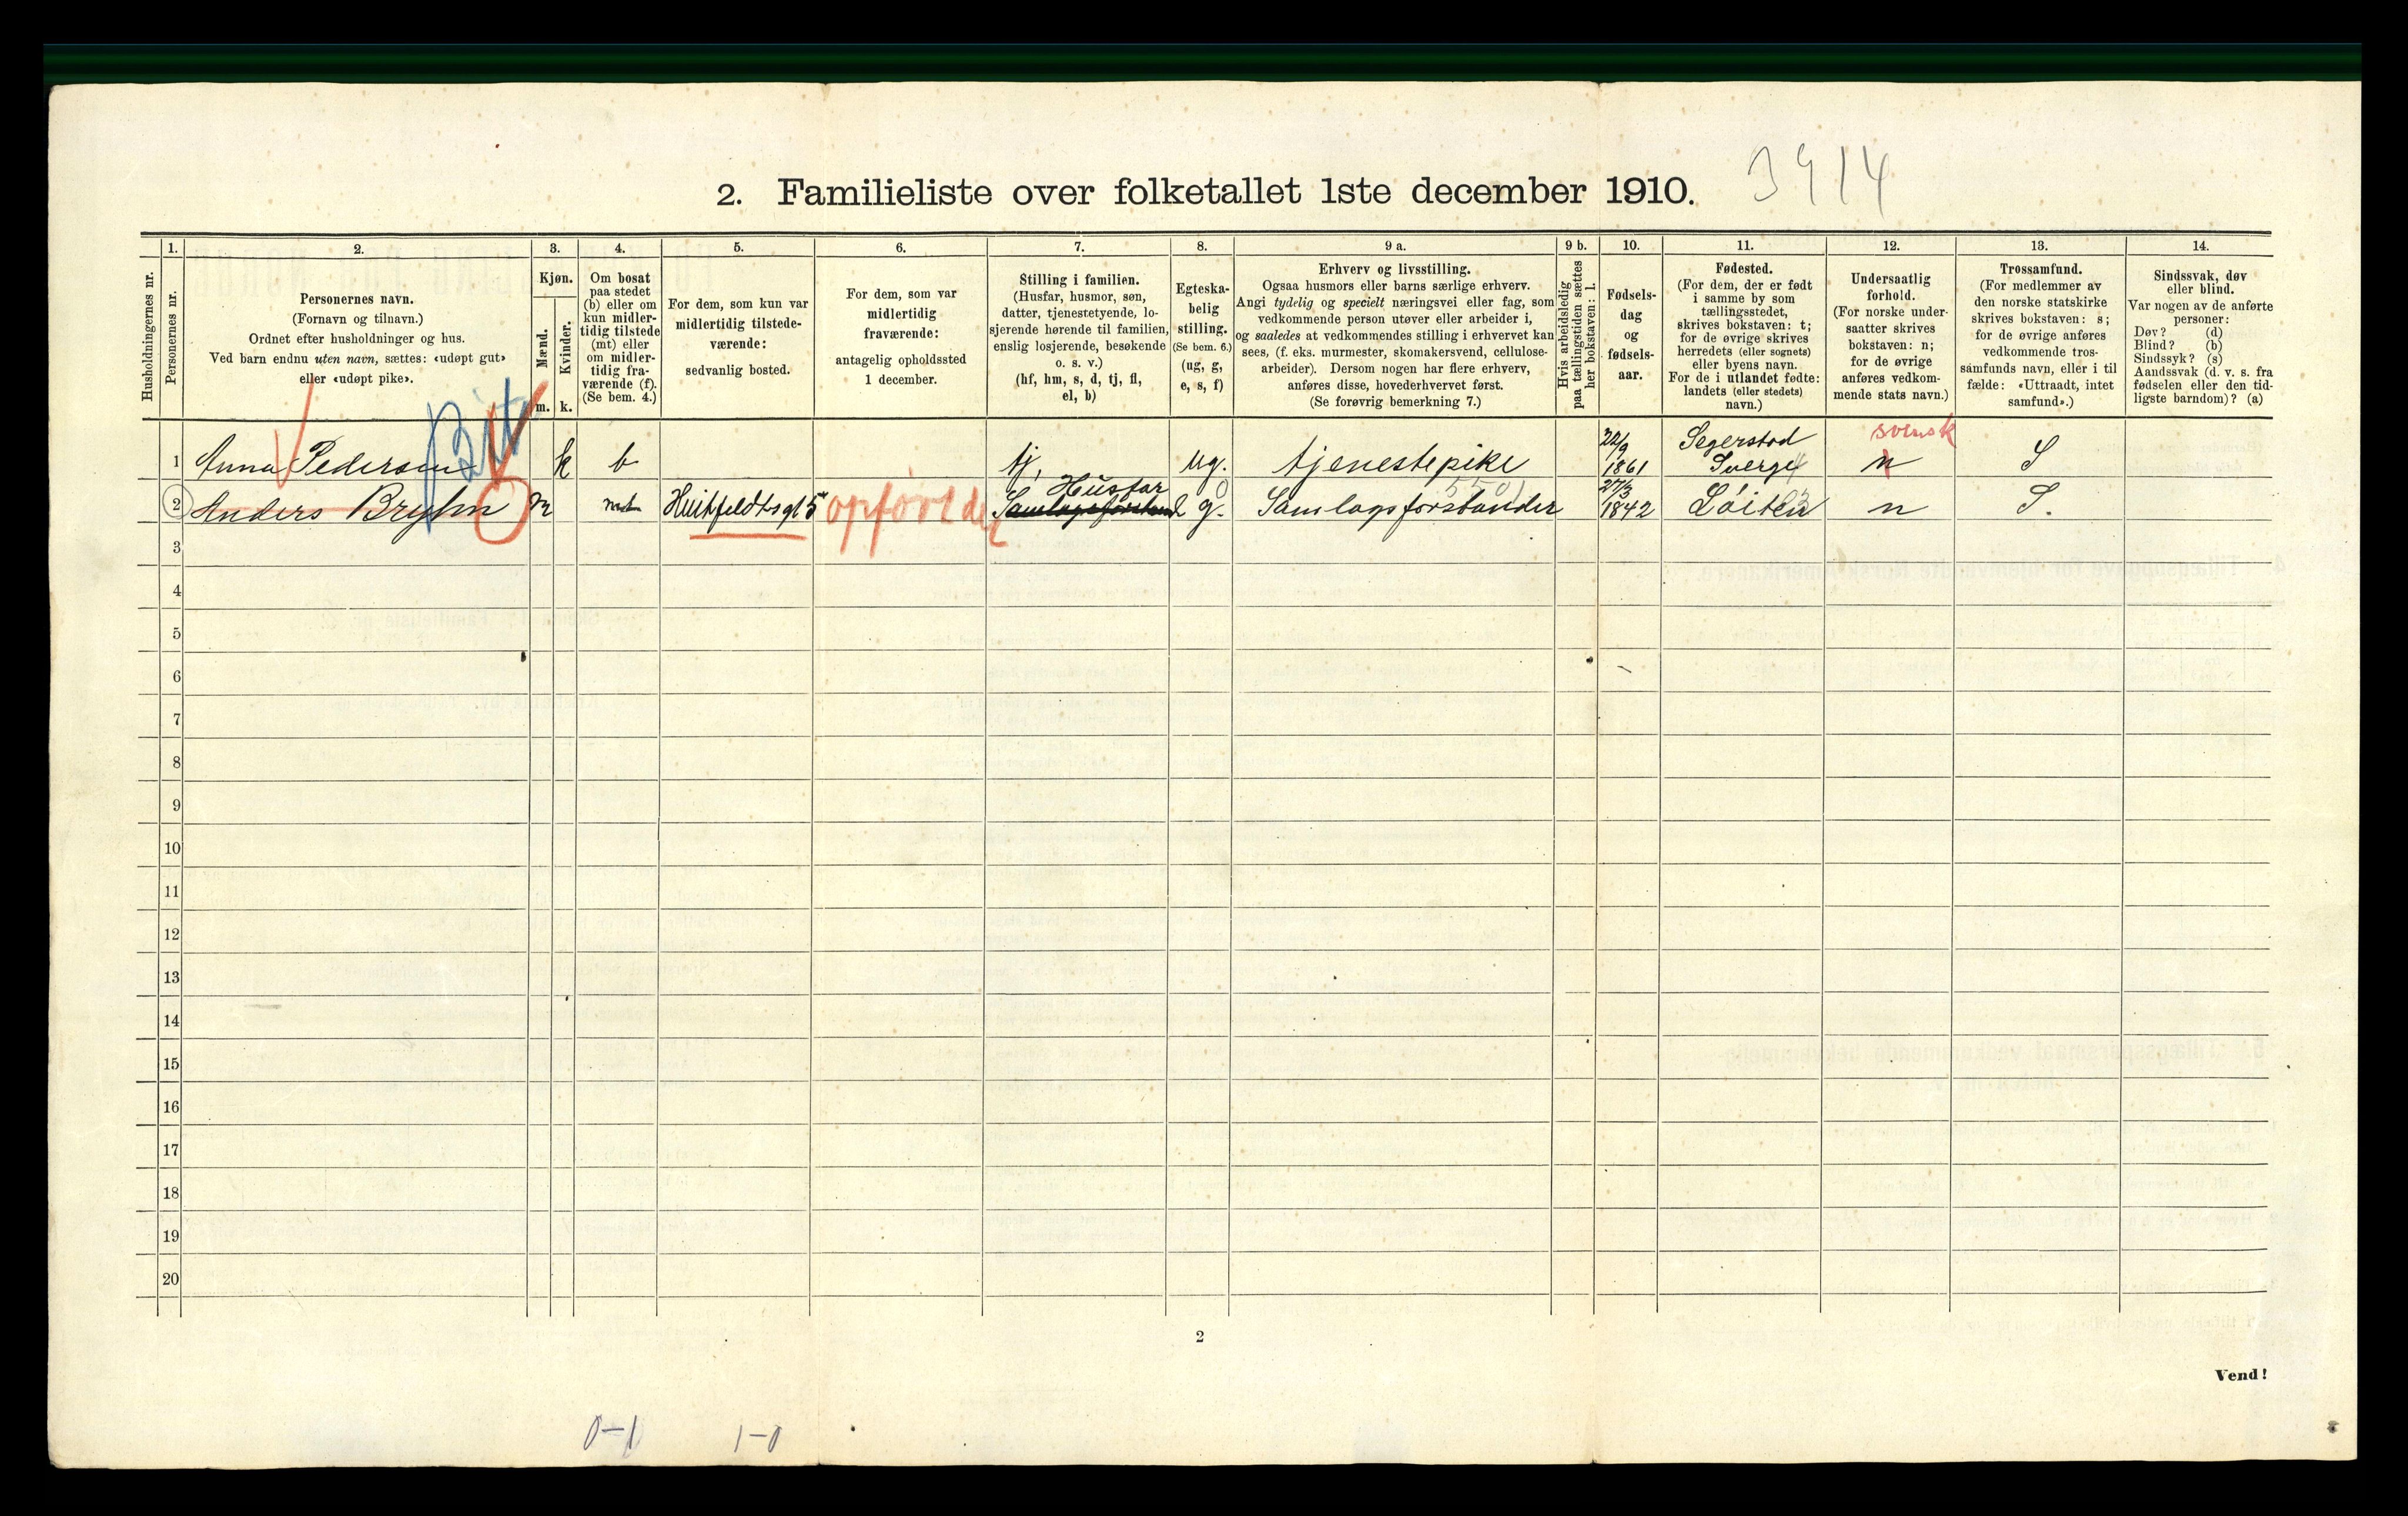 3914
2. Familieliste over folketallet 1ste december 1910.
Husholdningernes nr.
1.
Personernes nr.
2.
Personernes navn.
(Fornavn og tilnavn.)
Ordnet efter husholdninger og hus.
Ved barn endnu uten navn, sættes: «udøpt gut»
eller «udøpt pike».
3.
Kjøn.
Mænd.
m.
Kvinder.
k.
4.
Om bosat
paa stedet
(b) eller om
kun midler-
tidig tilstede
(mt) eller
om midler-
tidig fra-
værende (f).
(Se bem. 4.)
5.
For dem, som kun var
midlertidig tilstede-
værende:
sedvanlig bosted.
6.
For dem, som var
midlertidig
fraværende:
antagelig opholdssted
1 december.
7.
Stilling i familien.
(Husfar, husmor, søn,
datter, tjenestetyende, lo-
sjerende hørende til familien,
enslig losjerende, besøkende
o. s. v.)
(hf, hm, s, d, tj, fl,
el, b)
8.
Egteska-
belig
stilling.
(Se bem. 6.)
(ug, g,
e, s, f)
9 a.
Erhverv og livsstilling.
Ogsaa husmors eller barns særlige erhverv.
Angi tydelig og specielt næringsvei eller fag, som
vedkommende person utøver eller arbeider i,
og saaledes at vedkommendes stilling i erhvervet kan
sees, (f. eks. murmester, skomakersvend, cellulose-
arbeider). Dersom nogen har flere erhverv,
anføres disse, hovederhvervet først.
(Se forøvrig bemerkning 7.)
9 b.
Hvis arbeidsledig
paa tællingstiden sættes
her bokstaven: l.
10.
Fødsels-
dag
og
fødsels-
aar.
11.
Fødested.
(For dem, der er født
i samme by som
tællingsstedet,
skrives bokstaven: t;
for de øvrige skrives
herredets (eller sognets)
eller byens navn.
For de i utlandet fødte:
landets (eller stedets)
navn.)
12.
Undersaatlig
forhold.
(For norske under-
saatter skrives
bokstaven: n;
for de øvrige
anføres vedkom-
mende stats navn.)
13.
Trossamfund.
(For medlemmer av
den norske statskirke
skrives bokstaven: s;
for de øvrige anføres
vedkommende tros-
samfunds navn, eller i til
fælde: «Uttraadt, intet
samfund».)
14.
Sindssvak, døv
eller blind.
Var nogen av de anførte
personer:
Døv? (d)
Blind? (b)
Sindssyk? (s)
Aandssvak (d. v. s. fra
fødselen eller den tid-
ligste barndom)? (a)
1 Anna Pedersen k b tj. ug. tjenestepike 22/9 1861 Segerstad Sverge n svensk S
2 Anders Bryhn m mt Huitfeldtsgt 5 opført der Husfar g. Samlagsforstander 27/3 1842 Løiten n S.
3
4
5
6
7
8
9
10
11
12
13
14
15
16
17
18
19
20
2
Vend!
0-1 1-0